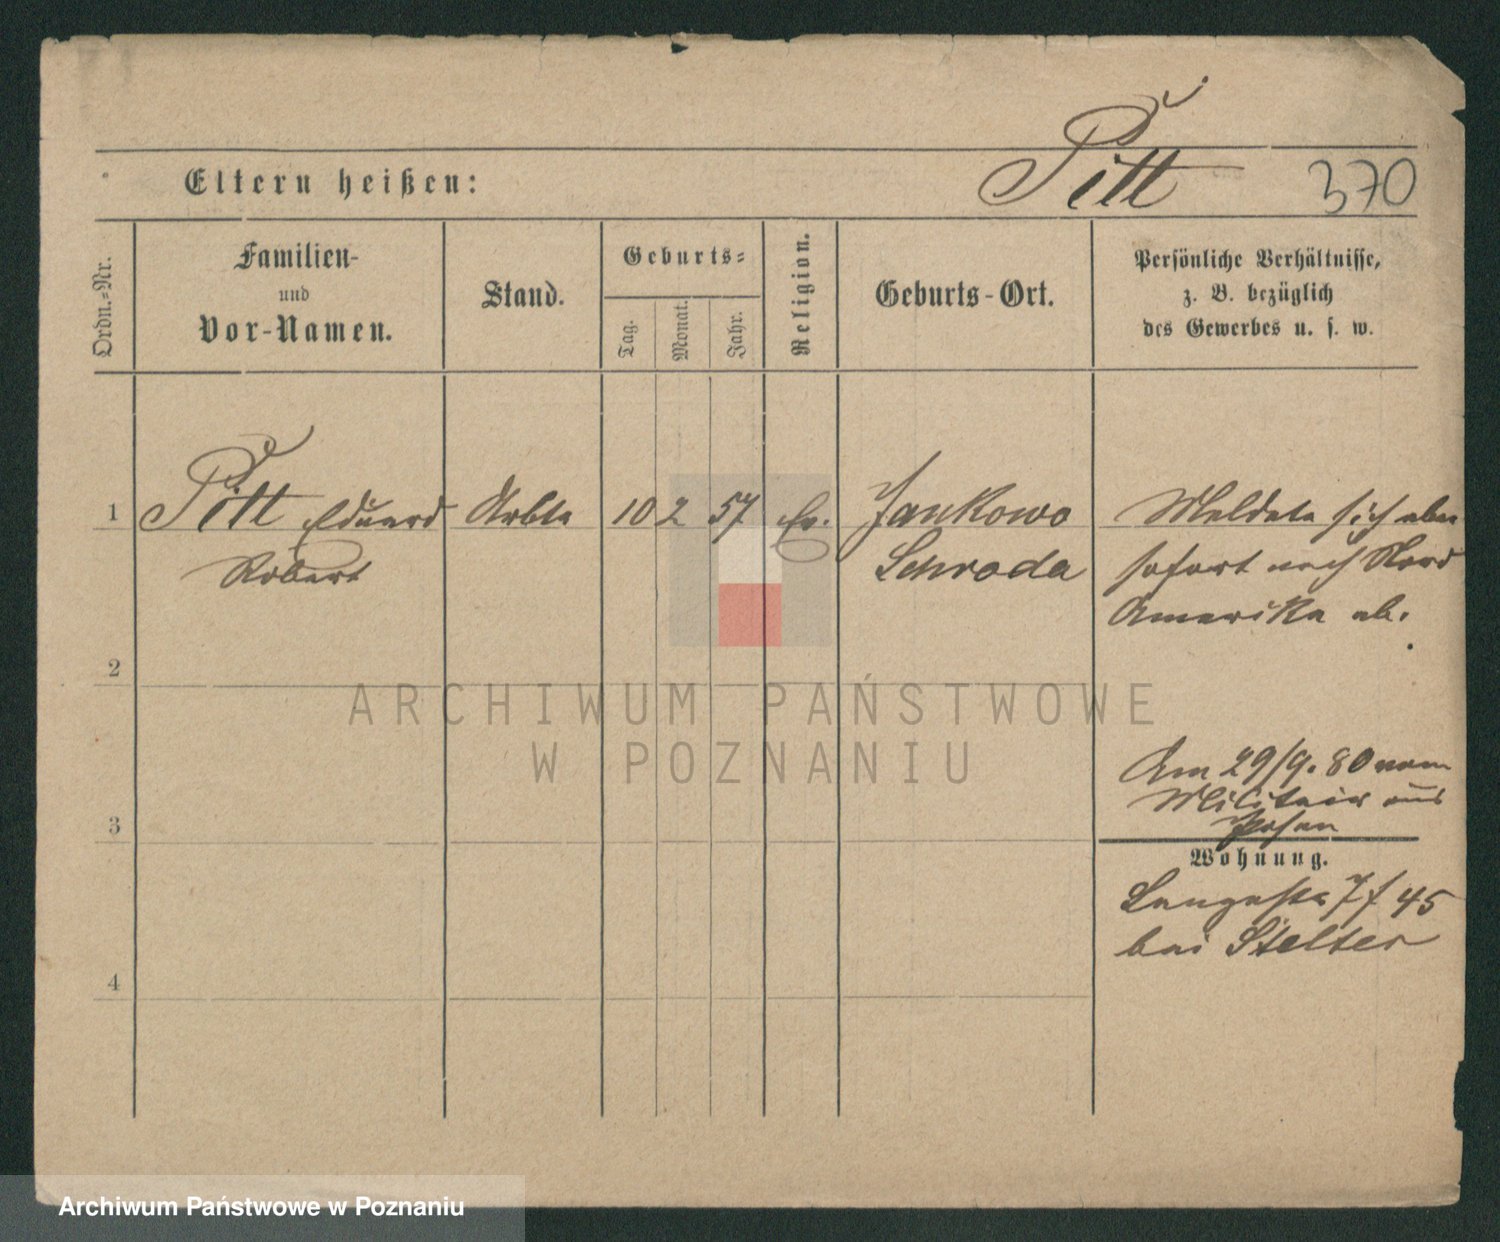 Pitt
Eltern heißen:
370
Ordn.-Nr.
Familien-
und
Vor-Namen.
Stand.
Geburts-
Tag.
Monat.
Jahr.
Religion.
Geburts-Ort.
Persönliche Verhältnisse,
z. B. bezüglich
des Gewerbes u. s. w.
1 Pitt Eduard Arbtr 10 2 57 Ev. Jankowo Meldete sich aber
Robert Schroda sofort nach Nord
Amerika ab.
2
ARCHIWUM PAŃSTWOWE
W POZNANIU
Am 29/9. 80 vom
Militair aus
3 Posen
Wohnung.
Langestr 7 f 45
bei Stelter
4
Archiwum Państwowe w Poznaniu